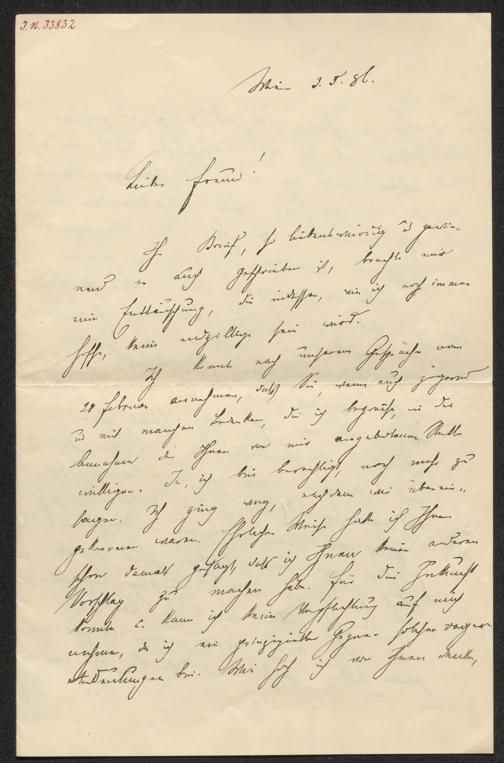 I.N. 33832
Wien 3. 5. 86.
Lieber Freund!
Ihr Brief, so liebenswürdig u gewin-
nend er auch geschrieben ist, brachte mir
eine Enttäuschung, die indessen, wie ich noch immer
hoffe, keine endgiltige sein wird.
Ich konnte nach unserem Gespräche vom
28 Februar annehmen, daß Sie, wenn auch zögernd
u mit manchen Bedenken, die ich begreife, in die
Annahme der Ihnen von mir angebotenen Stelle
willigen. Ja, ich bin berechtigt, noch mehr zu
sagen. Ich ging weg, nachdem wir überein-
gekommen waren. Ehrlicher Weise hatte ich Ihnen
schon damals gesagt, daß ich Ihnen keinen anderen
Vorschlag zu machen habe. Für die Zukunft
konnte u. kann ich keine Verpflichtung auf mich
nehmen, da ich ein prinzipieller Gegner solcher vager
Andeutungen bin. Wie hoch ich von Ihnen denke,